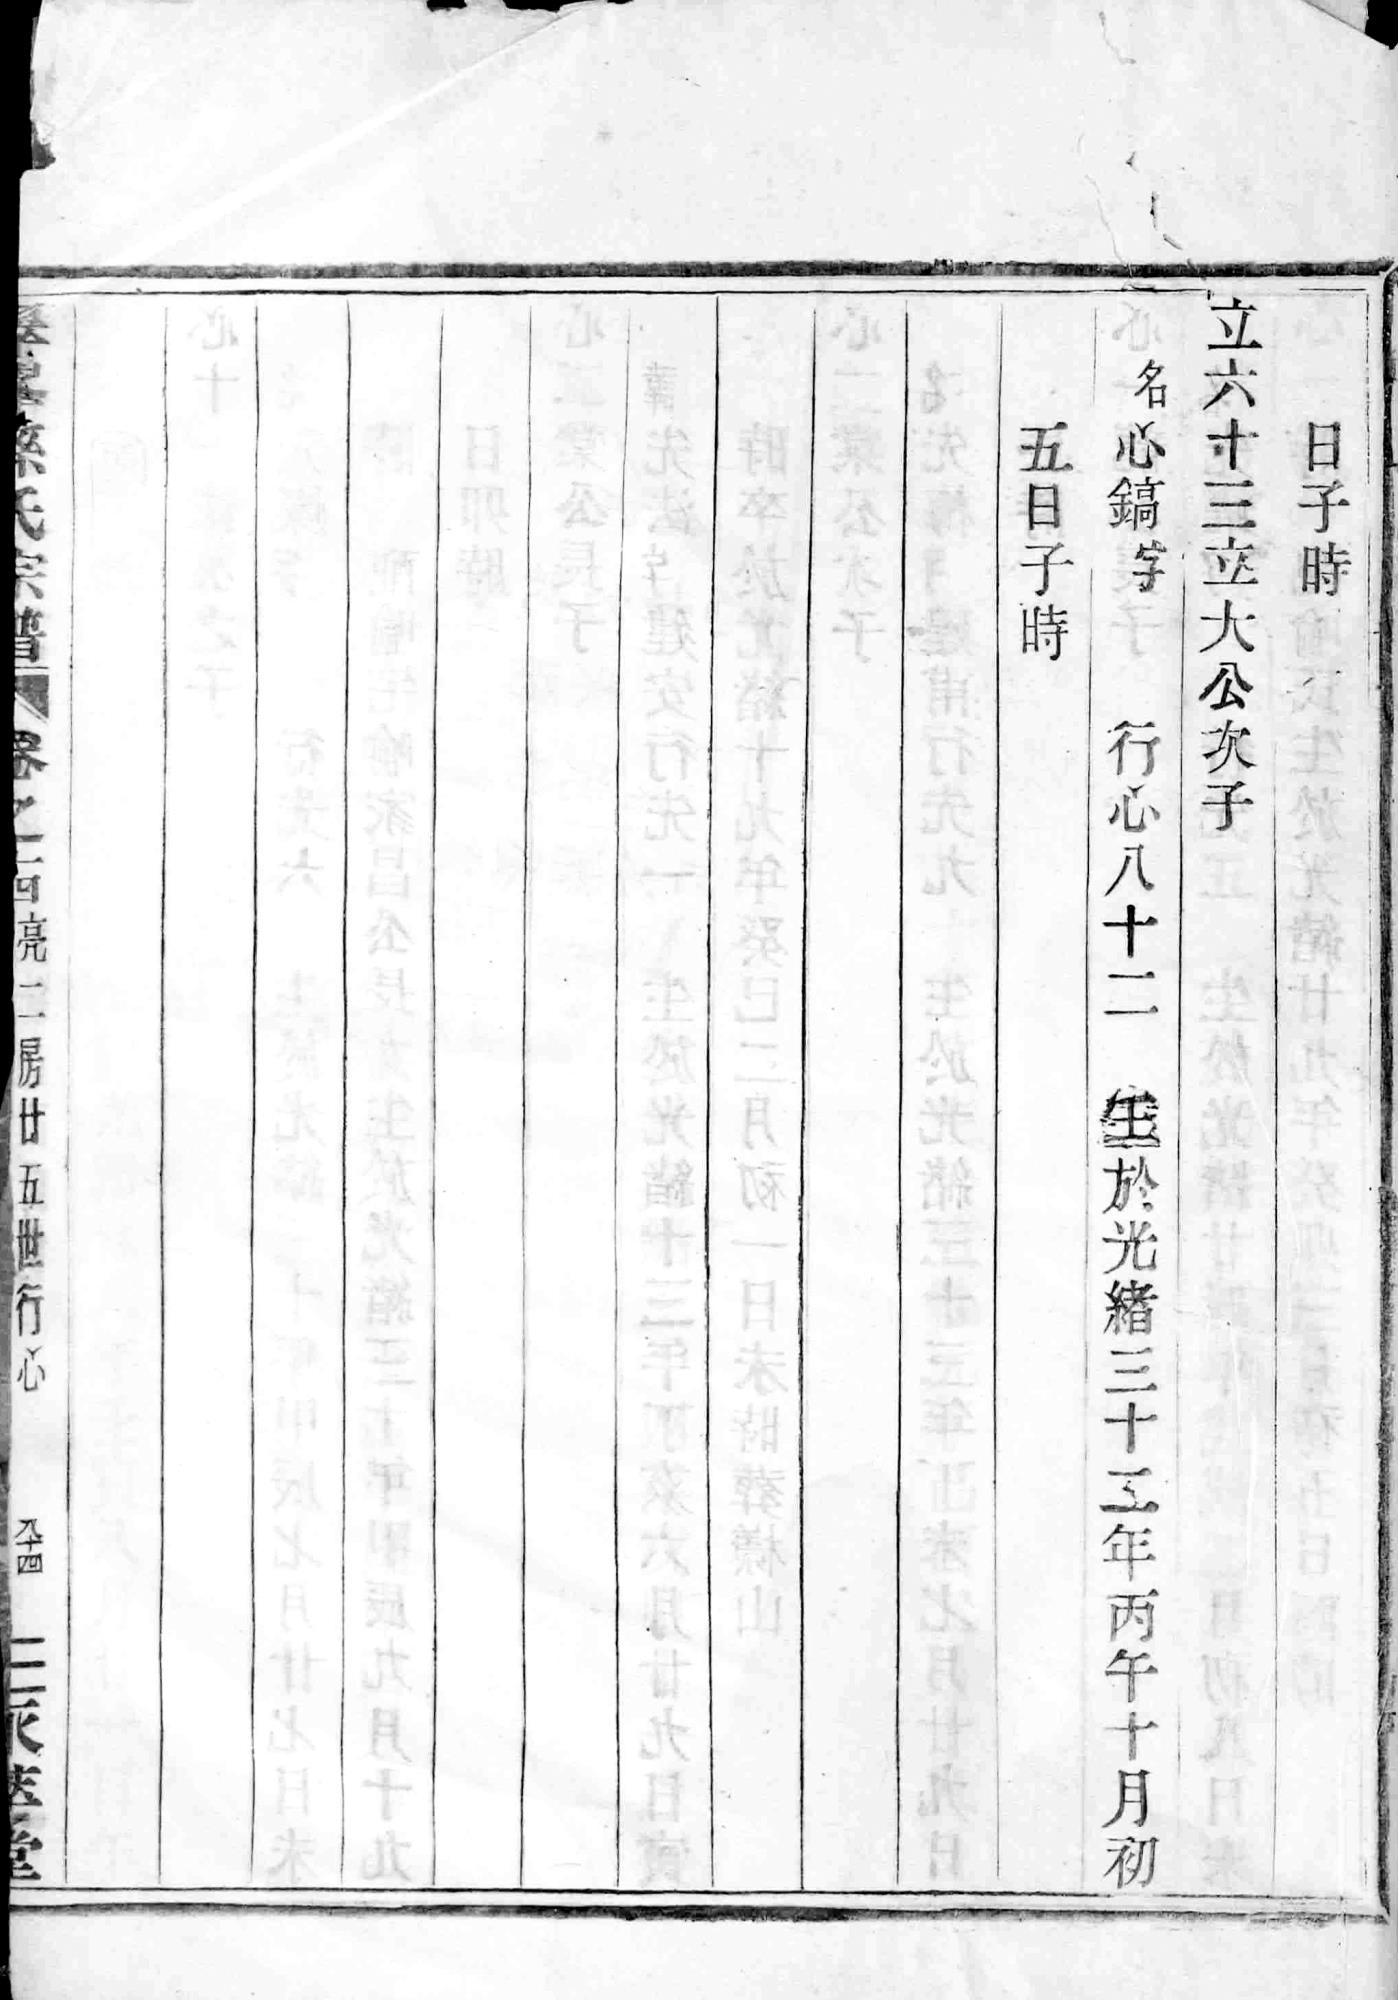 日子時
立六十三立大公次子
名心鎬字 行心八十二 生於光緒三十二年丙午十月初
五日子時
氏宗譜 卷之 亮二房廿五世行心 八十四 三